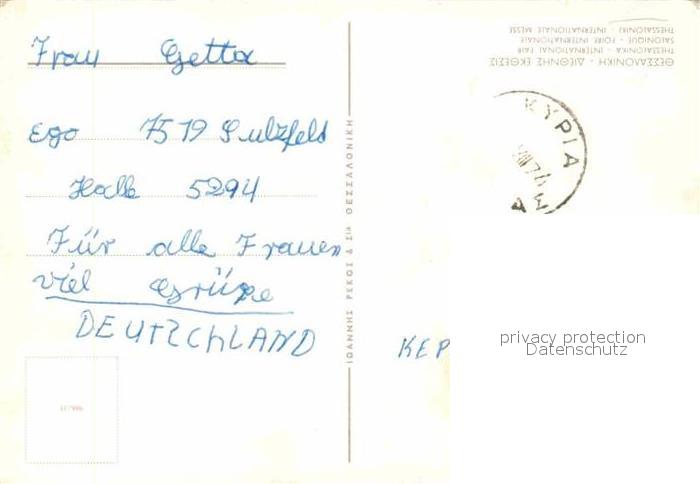 Frau Getta
Ego 7519 Sulzfeld
Halle 5294
Für alle Frauen
viel Grüße
DEUTSChLAND
ΙΩΑΝΝΗΣ ΡΕΚΟΣ & ΣΙΑ ΘΕΣΣΑΛΟΝΙΚΗ
ΘΕΣΣΑΛΟΝΙΚΗ - ΔΙΕΘΝΗΣ ΕΚΘΕΣΙΣ
THESSALONIKA - INTERNATIONAL FAIR
SALONIQUE - FOIRE INTERNATIONALE
THESSALONIKI - INTERNATIONALE MESSE
ΚΥΡΙΑ
ΚΕΡ
privacy protection
Datenschutz